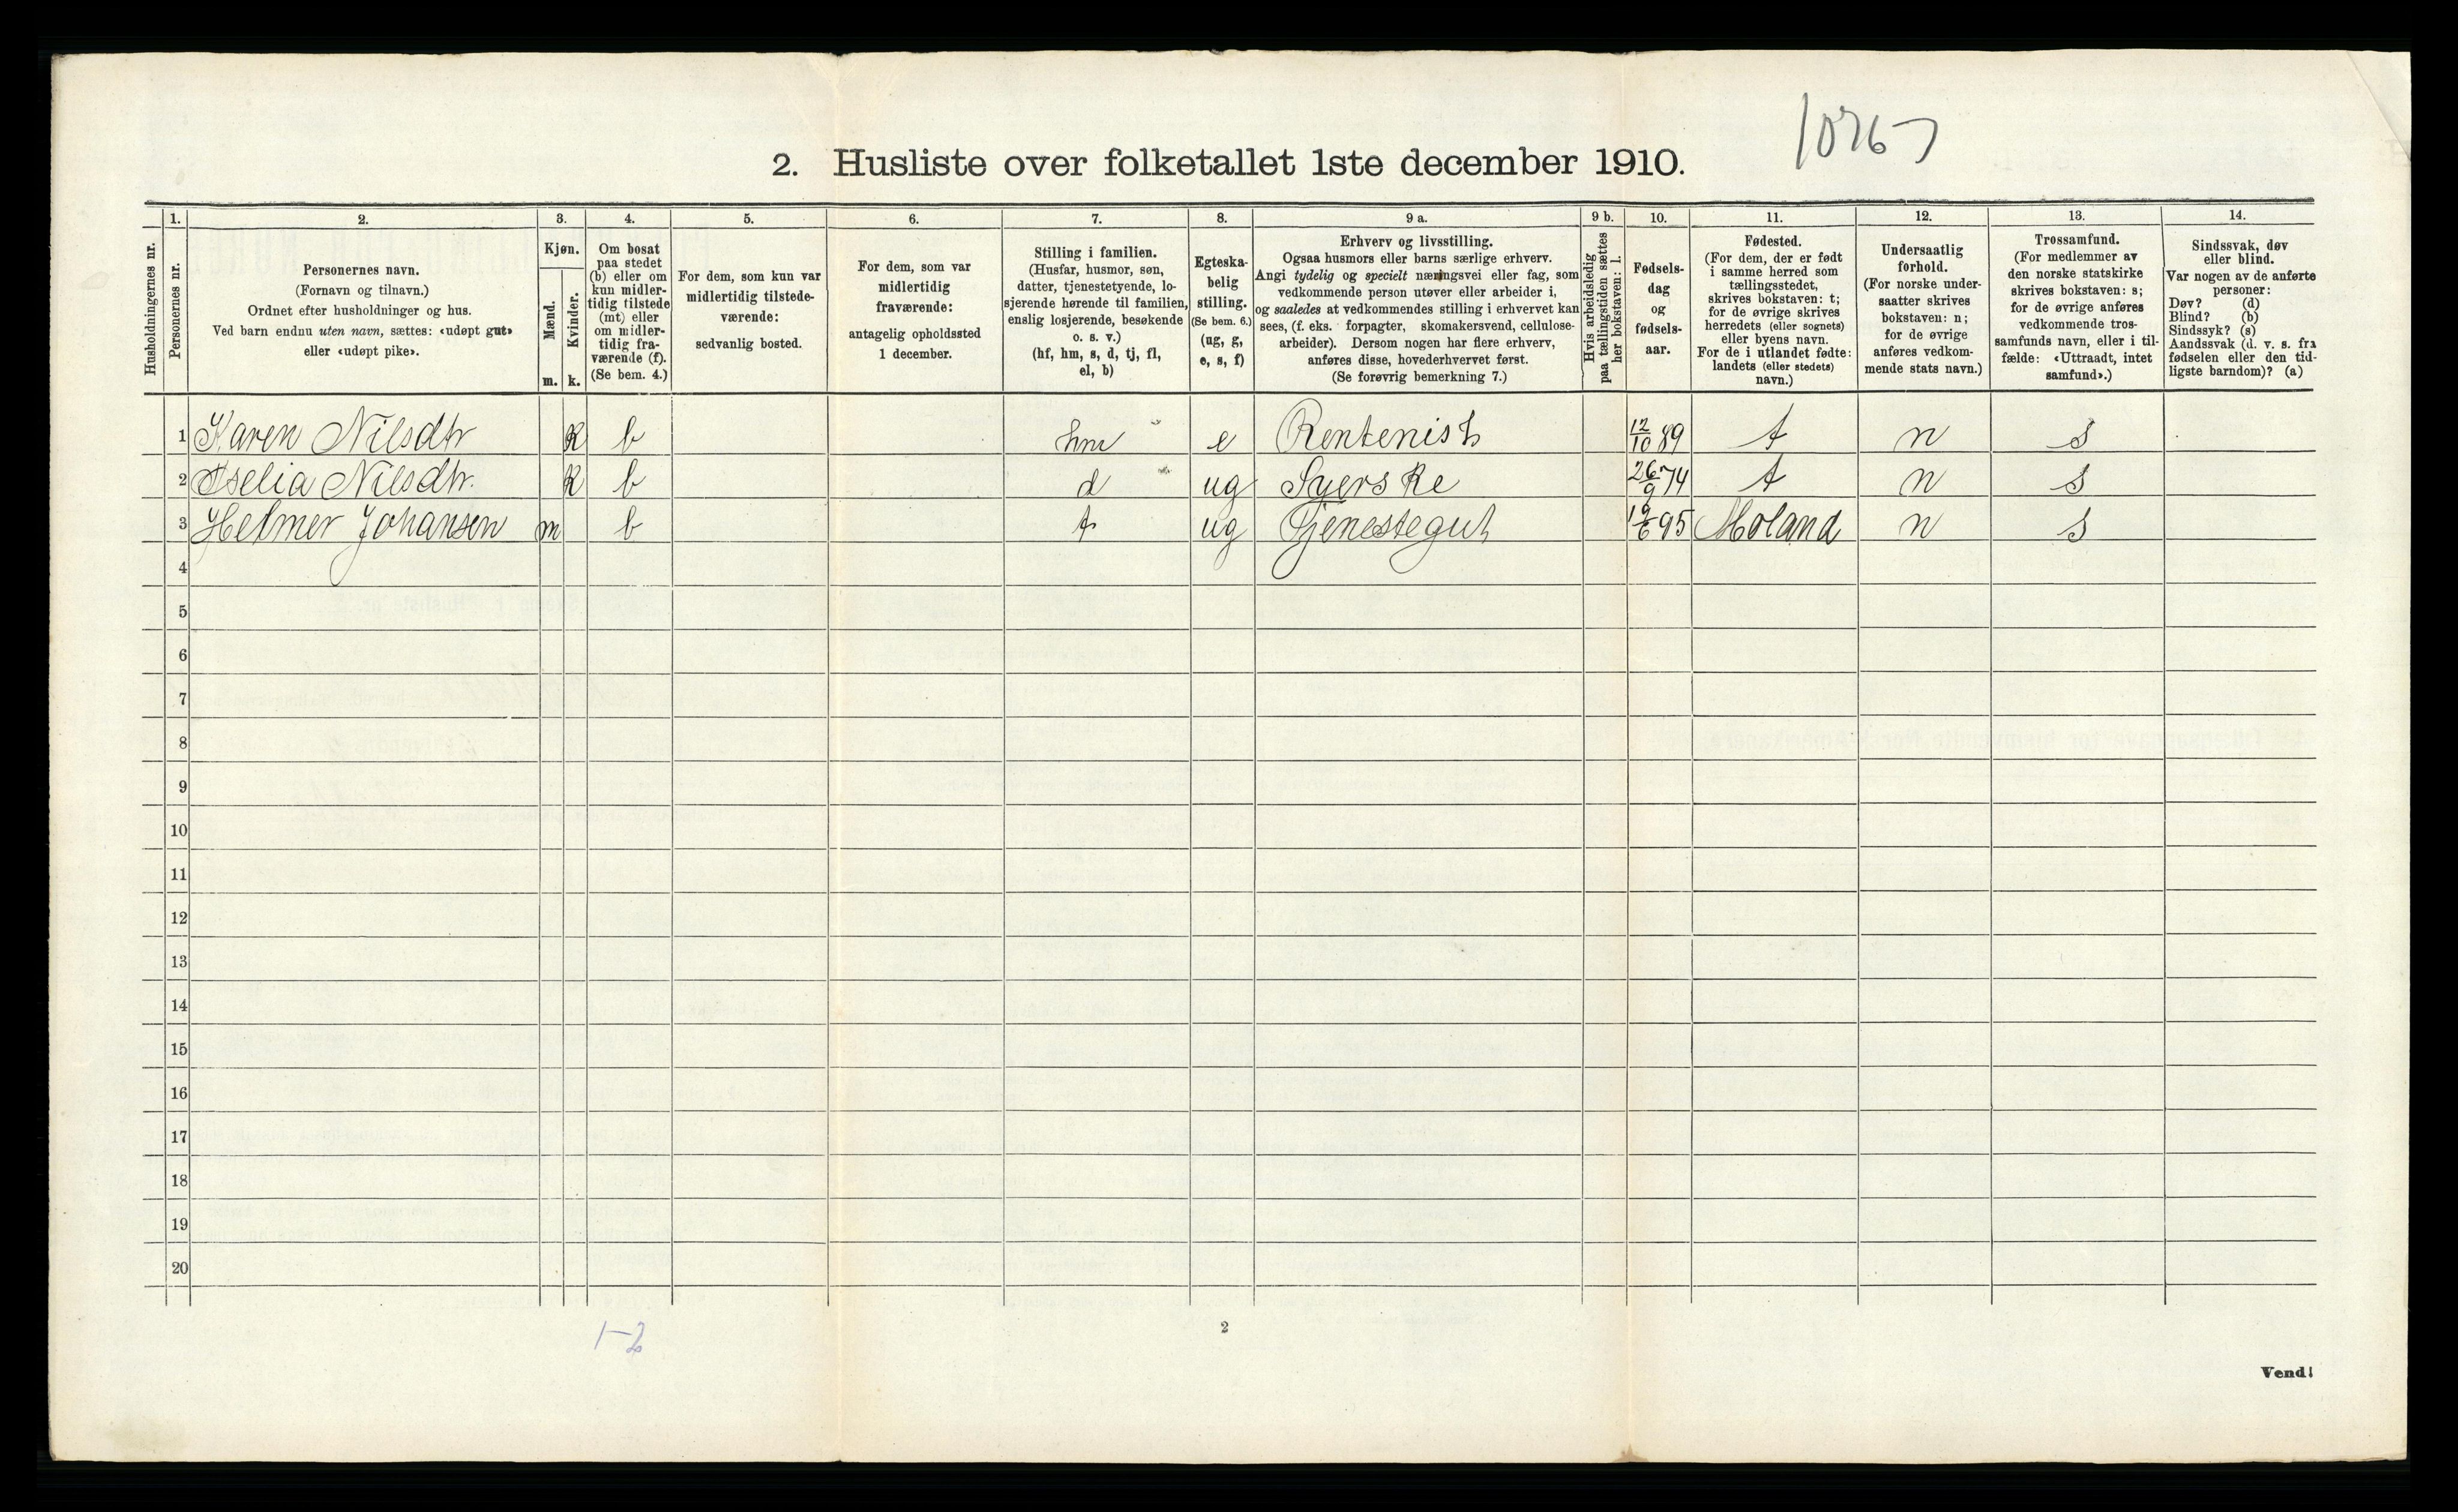 2. Husliste over folketallet 1ste december 1910.
Husholdningernes nr.
1.
Personernes nr.
2.
Personernes navn.
(Fornavn og tilnavn.)
Ordnet efter husholdninger og hus.
Ved barn endnu uten navn, sættes: «udøpt gut»
eller «udøpt pike».
3.
Kjøn.
Mænd.
Kvinder.
m. k.
4.
Om bosat
paa stedet
(b) eller om
kun midler-
tidig tilstede
(mt) eller
om midler-
tidig fra-
værende (f).
(Se bem. 4.)
5.
For dem, som kun var
midlertidig tilstede-
værende:
sedvanlig bosted.
6.
For dem, som var
midlertidig
fraværende:
antagelig opholdssted
1 december.
7.
Stilling i familien.
(Husfar, husmor, søn,
datter, tjenestetyende, lo-
sjerende hørende til familien,
enslig losjerende, besøkende
o. s. v.)
(hf, hm, s, d, tj, fl,
el, b)
8.
Egteska-
belig
stilling.
(Se bem. 6.)
(ug, g,
e, s, f)
9 a.
Erhverv og livsstilling.
Ogsaa husmors eller barns særlige erhverv.
Angi tydelig og specielt næringsvei eller fag, som
vedkommende person utøver eller arbeider i,
og saaledes at vedkommendes stilling i erhvervet kan
sees, (f. eks. forpagter, skomakersvend, cellulose-
arbeider). Dersom nogen har flere erhverv,
anføres disse, hovederhvervet først.
(Se forøvrig bemerkning 7.)
9 b.
Hvis arbeidsledig
paa tællingstiden sættes
her bokstaven: l.
10.
Fødsels-
dag
og
fødsels-
aar.
11.
Fødested.
(For dem, der er født
i samme herred som
tællingsstedet,
skrives bokstaven: t;
for de øvrige skrives
herredets (eller sognets)
eller byens navn.
For de i utlandet fødte:
landets (eller stedets)
navn.)
12.
Undersaatlig
forhold.
(For norske under-
saatter skrives
bokstaven: n;
for de øvrige
anføres vedkom-
mende stats navn.)
13.
Trossamfund.
(For medlemmer av
den norske statskirke
skrives bokstaven: s;
for de øvrige anføres
vedkommende tros-
samfunds navn, eller i til-
fælde: «Uttraadt, intet
samfund».)
14.
Sindssvak, døv
eller blind.
Var nogen av de anførte
personer:
Døv? (d)
Blind? (b)
Sindssyk? (s)
Aandssvak (d. v. s. fra
fødselen eller den tid-
ligste barndom)? (a)
1 Karen Nilsdtr K b hm e Rentenist 12/10 89 t n s
2 Nilsdtr. K b d ug Syerske 26/9 74 t n s
3 Helmer Johansen m b t ug Tjenestegut 19/6 95 Moland n s
4
5
6
7
8
9
10
11
12
13
14
15
16
17
18
19
20
1-2
2
Vend!